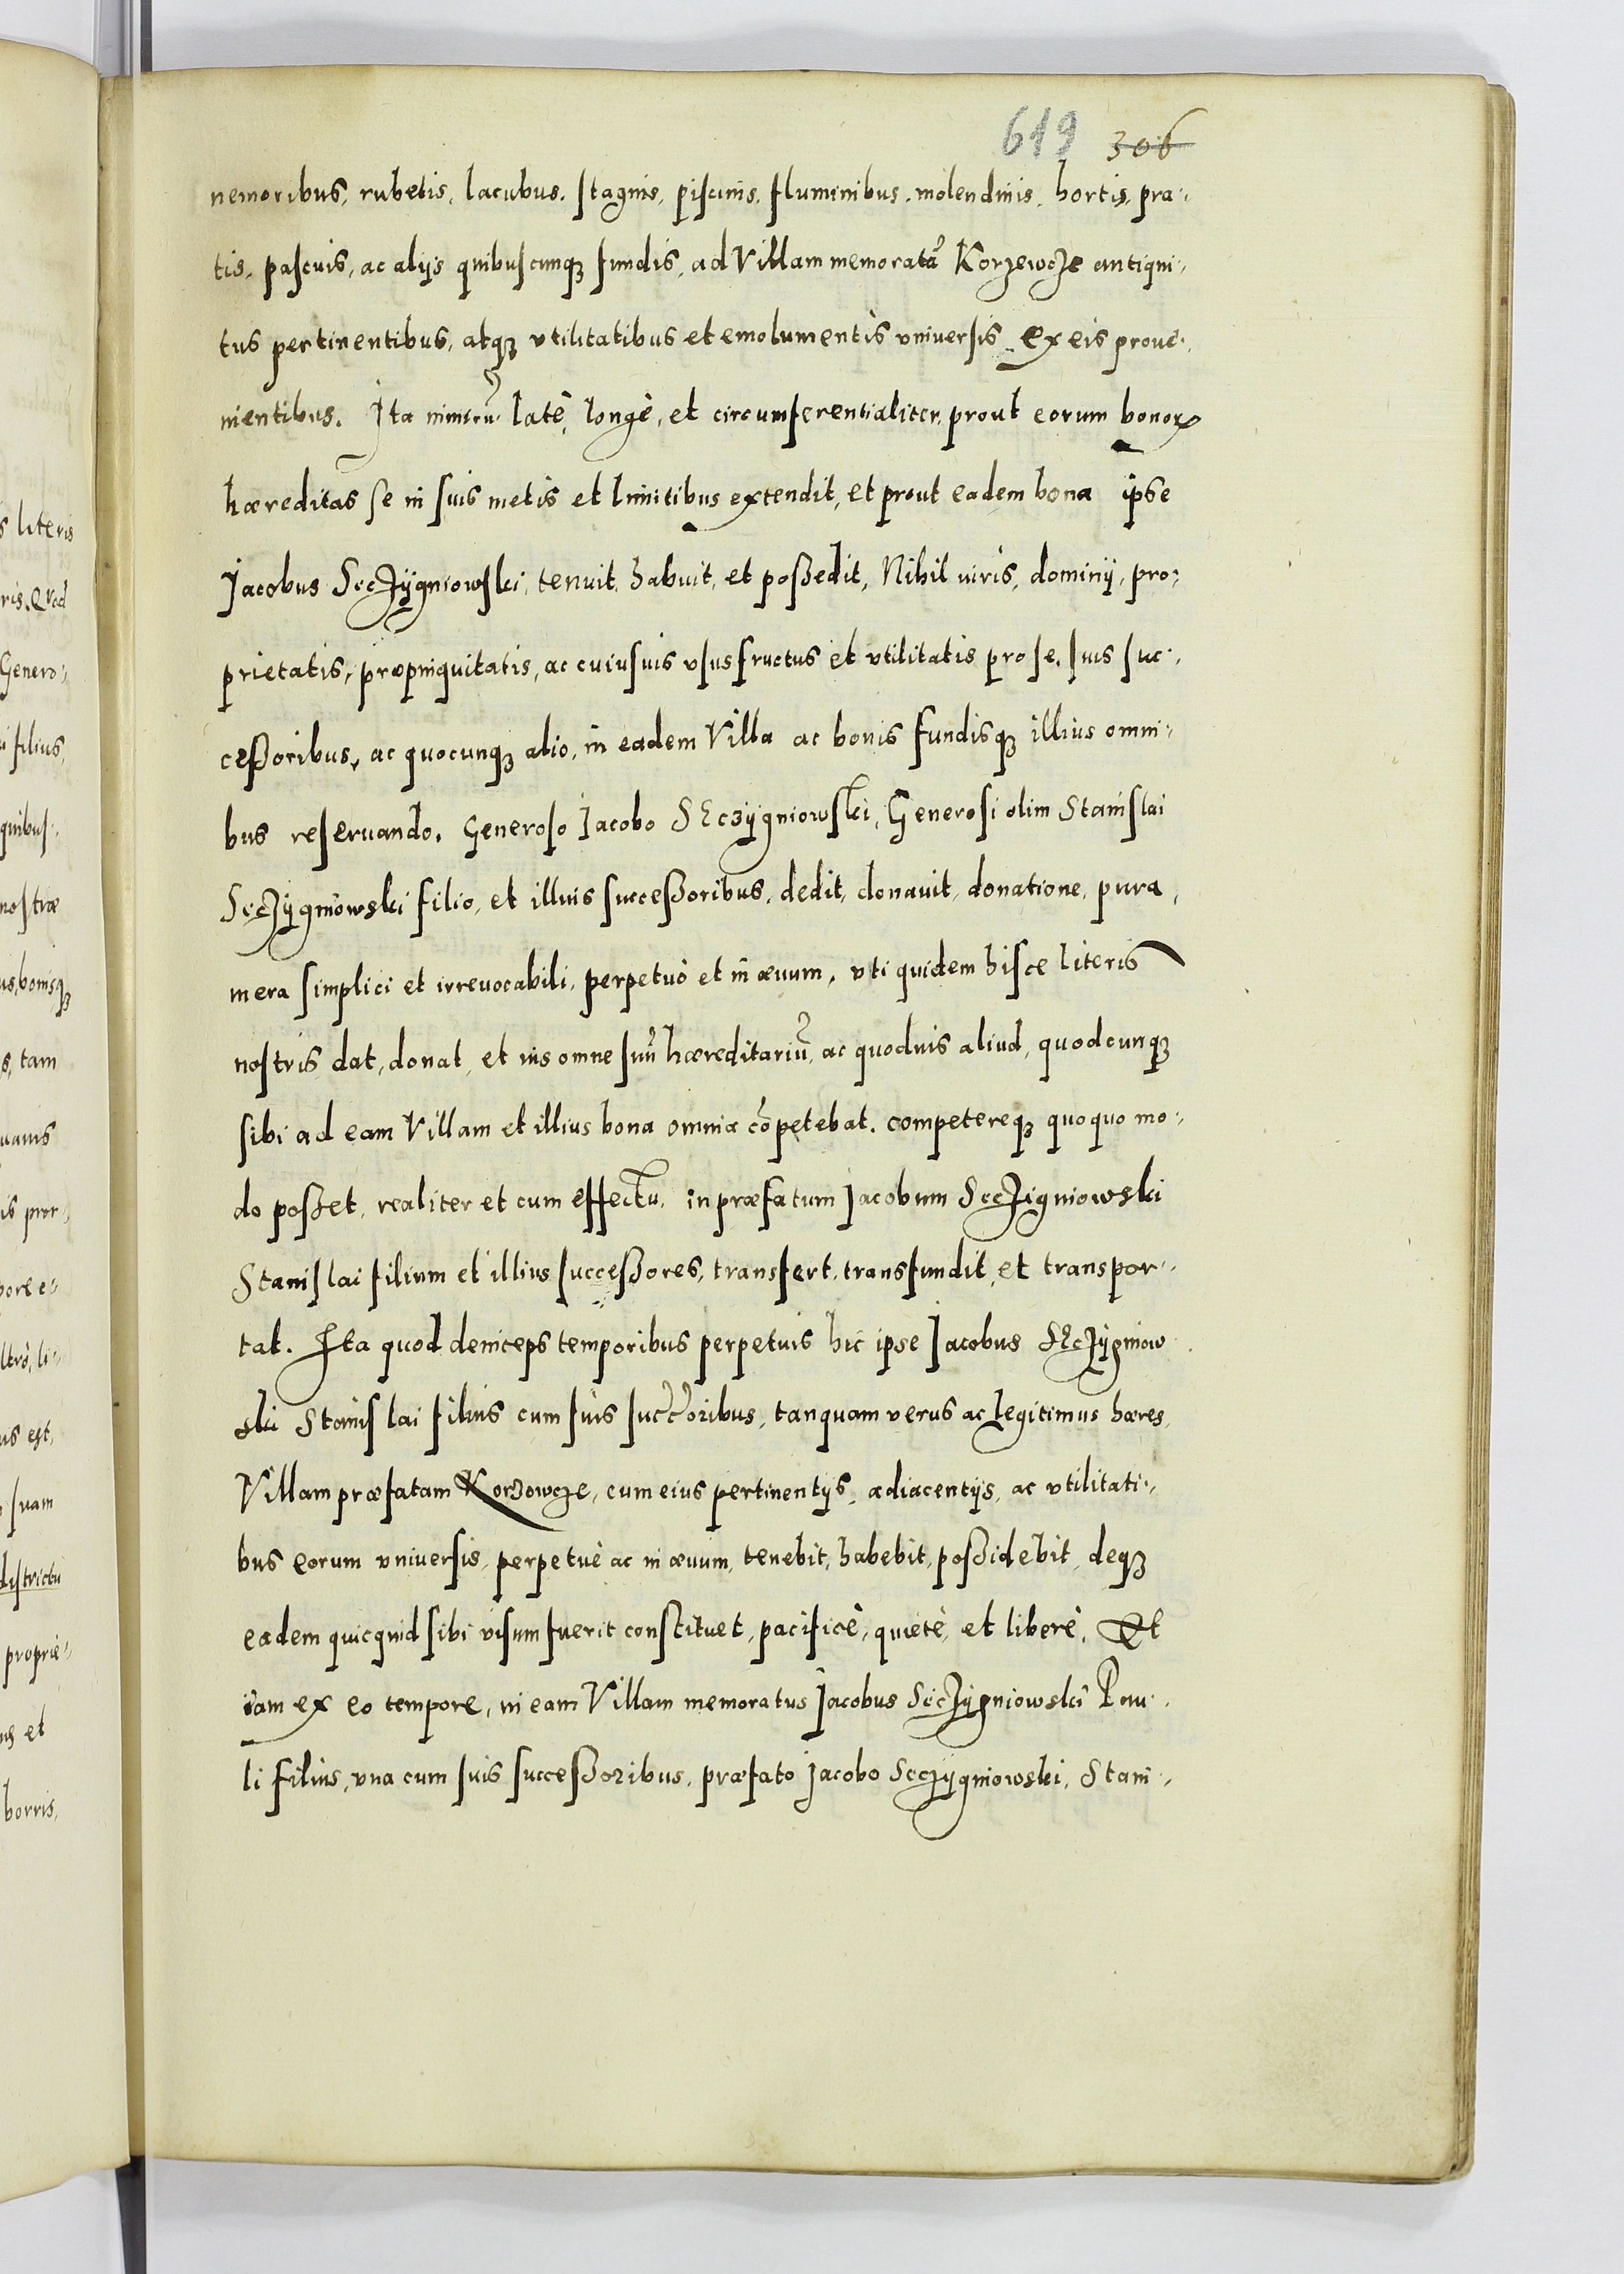 619 306
nemoribus, rubetis, lacubus, stagnis, piscinis, fluminibus, molendinis, hortis, pra-
tis, pascuis, ac alijs quibuscunqꝫ fundis, ad Villam memoratã Korzewcze antiqui-
tus pertinentibus, atqꝫ vtilitatibus et emolumentis vniversis ex eis prove-
nientibus. Ita nimirũ latè, longè, et circumferentialiter, prout eorum bonoꝝ
hæreditas se in suis metis et limitibus extendit, et prout eadem bona ipse
Jacobus Seczÿgniowski, tenuit, habuit, et poßedit, Nihil iuris, dominij, pro-
prietatis, propinquitatis, ac cuiusuis vsusfructus et vtilitatis pro se, suis suc-
ceßoribus, ac quocunqꝫ alio, in eadem Villa ac bonis fundisqꝫ illius omni-
bus reseruando. Generoso Jacobo SEczÿgniowski, Generosi olim Stanislai
Seczÿgniowski filio, et illius succeßoribus, dedit, donauit, donatione, pura,
mera simplici et irreuocabili, perpetuò et in æuum, vti quidem hisce literis
nostris dat, donat, et ius omne suũ hæreditariũ, ac quoduis aliud, quodcunqꝫ
sibi ad eam Villam et illius bona omnia cõpetebat, competereqꝫ quoquo mo-
do poßet, realiter et cum effectu, in præfatum Jacobum Seczigniowski
Stanislai filium et illius succeßores, transfert, transfundit, et transpor-
tat. Ita quod deinceps temporibus perpetuis hic ipse Jacobus SEczÿgniow
ski Stanislai filius cum suis succ̃oribus, tanquam verus ac legitimus hæres,
Villam præfatam Korzowcze, cum eius pertinentijs, adiacentijs, ac vtilitati-
bus eorum vniversis, perpetuè ac in æuum, tenebit, habebit, poßidebit, deqꝫ
eadem quicquid sibi visum fuerit constituet, pacificè, quietè, et liberè. Et
iam ex eo tempore, in eam Villam memoratus Jacobus Seczÿgniowski Pau-
li filius, vna cum suis succeßoribus, præfato Jacobo Seczÿgniowski, Stani-